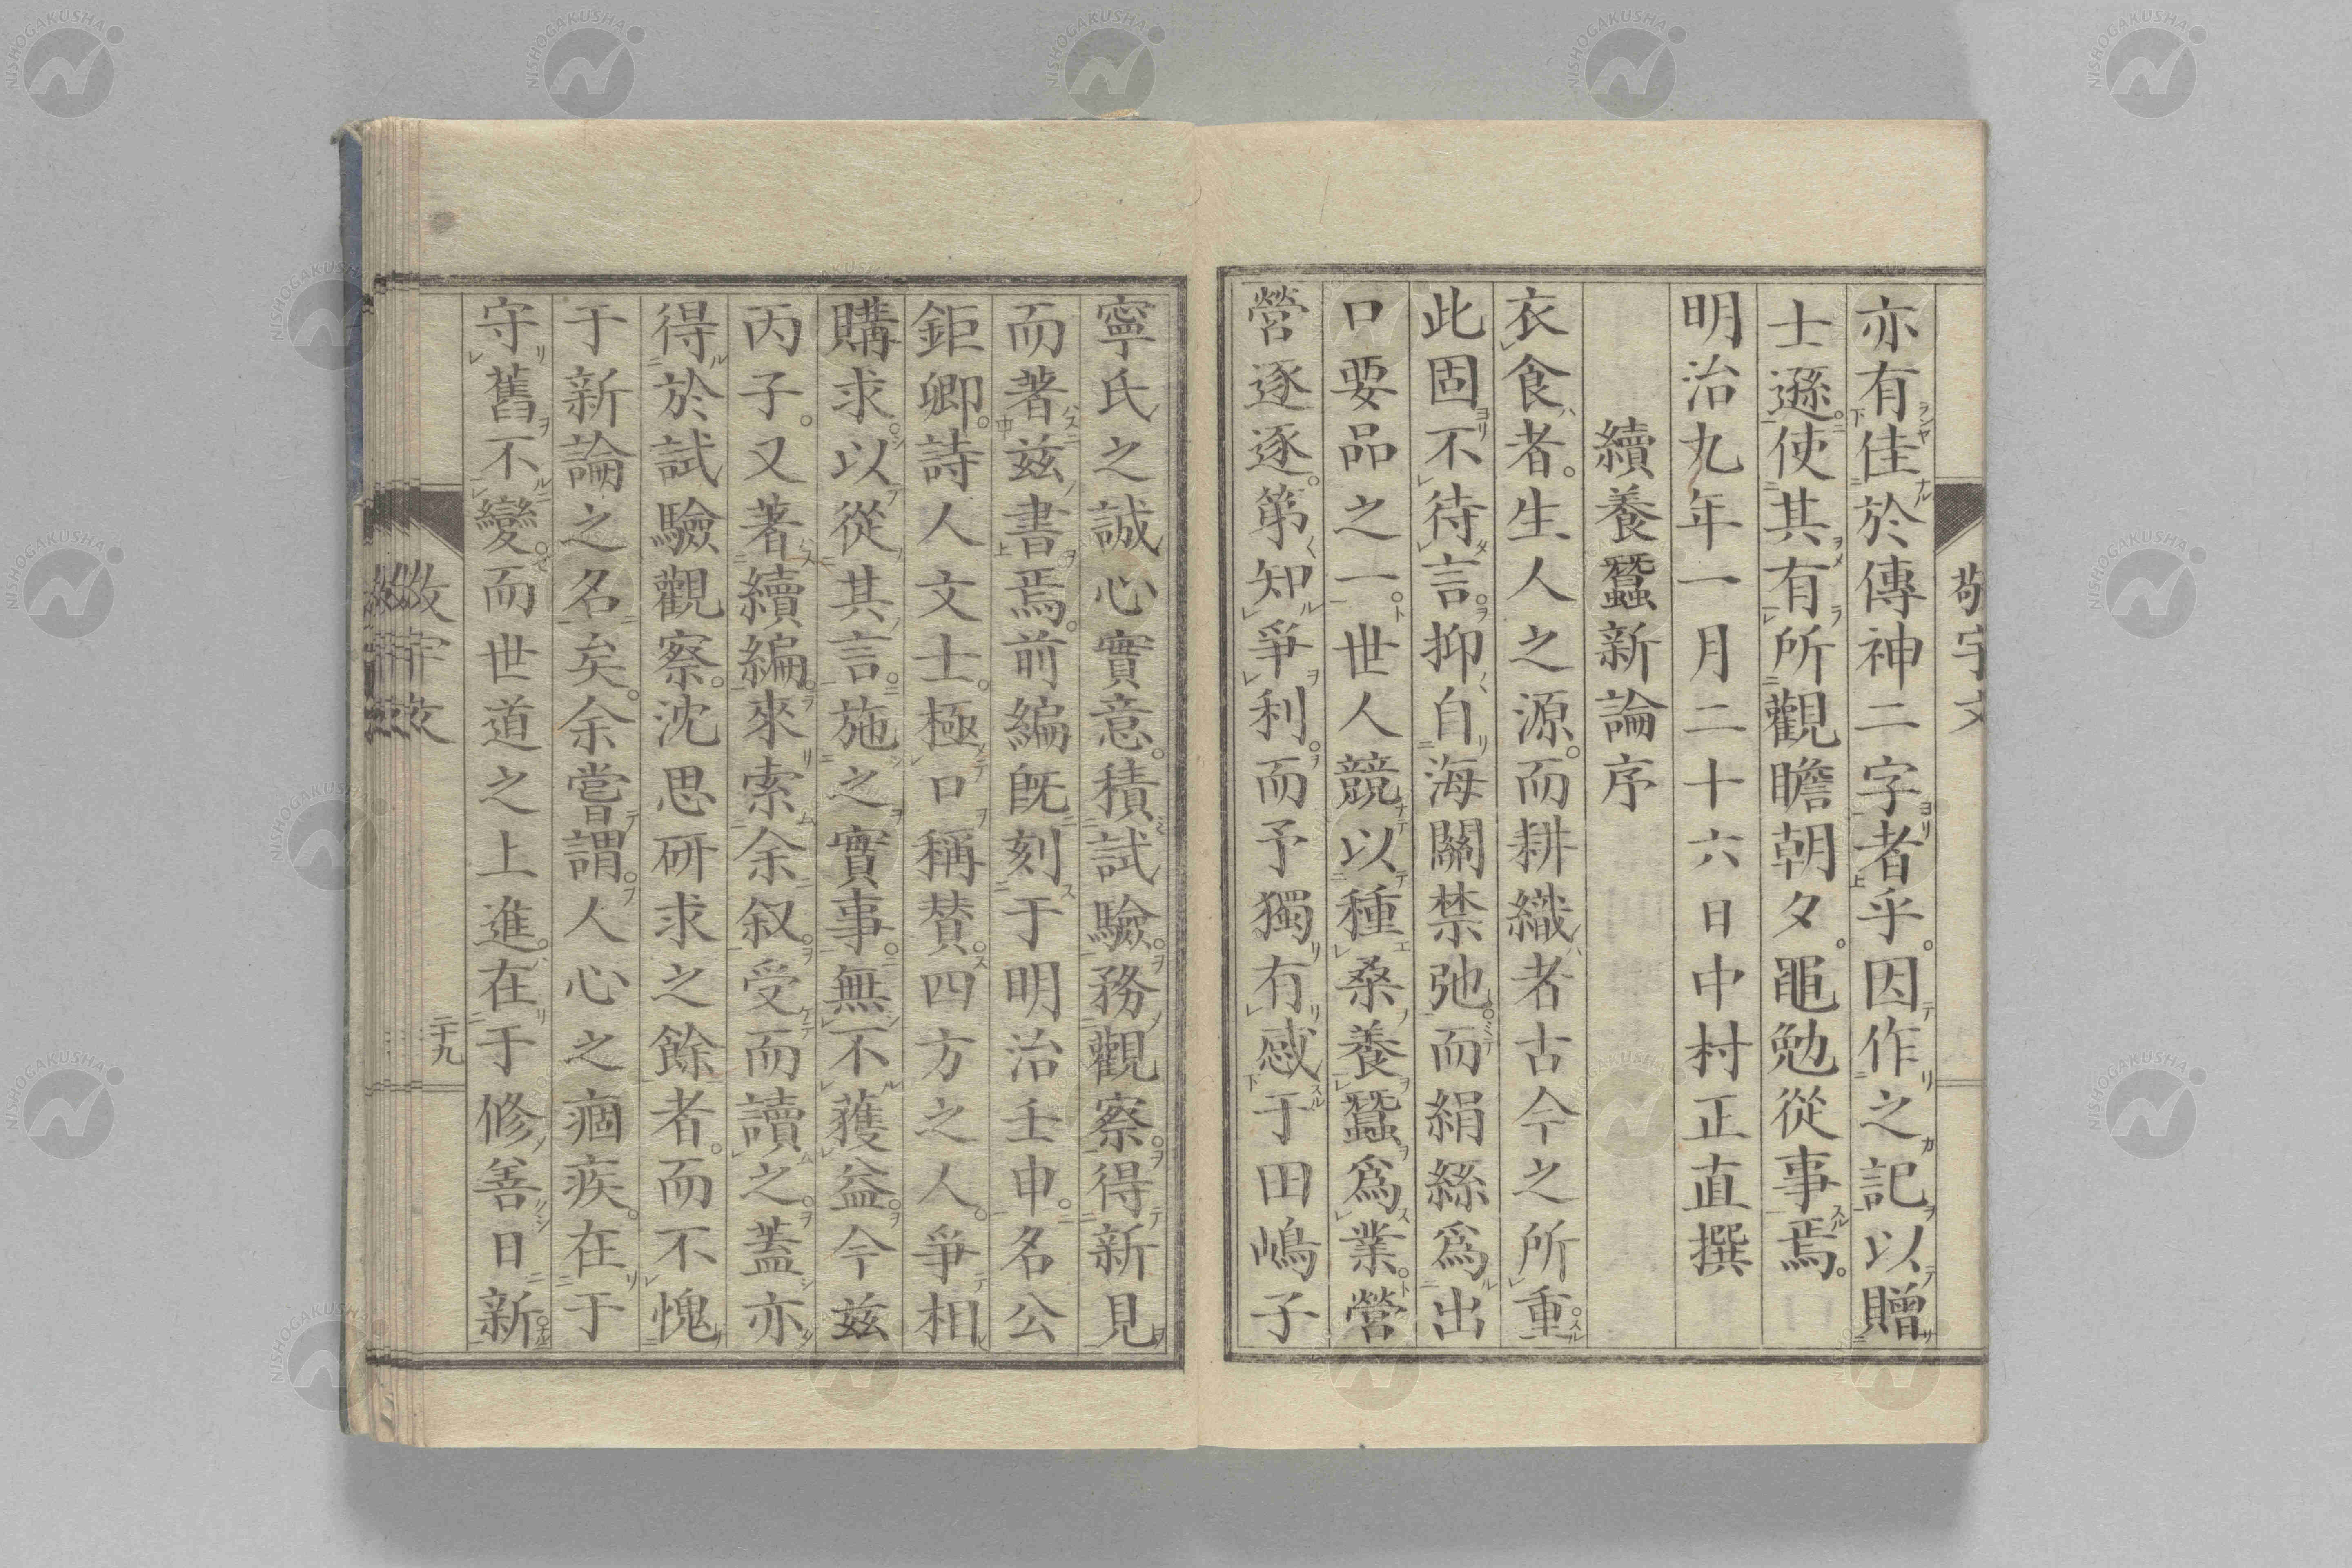 亦有佳於傳神二字者乎。因作之記以贈
士遜。使其有所觀瞻朝夕。黽勉從事焉。
明治九年一月二十六日中村正直撰
續養蠶新論序
衣食者。生人之源。而耕織者古今之所重。
此固不待言。抑自海關禁弛。而絹絲爲出
口要品之一。世人競以種桑養蠶爲業。營
營逐逐。第知爭利。而予獨有感于田嶋子
寧氏之誠心實意。積試驗。務觀察。得新見
而著茲書焉。前編既刻于明治壬申。名公
鉅卿。詩人文士。極口稱賛。四方之人。爭相
購求。以從其言。施之實事。無不獲益。今茲
丙子。又著續編。來索余叙。受而讀之。蓋亦
得於試驗觀察。沈思研求之餘者。而不愧
于新論之名矣。余嘗謂。人心之痼疾。在于
守舊不變。而世道之上進。在于修善日新。
敬宇文
二十九